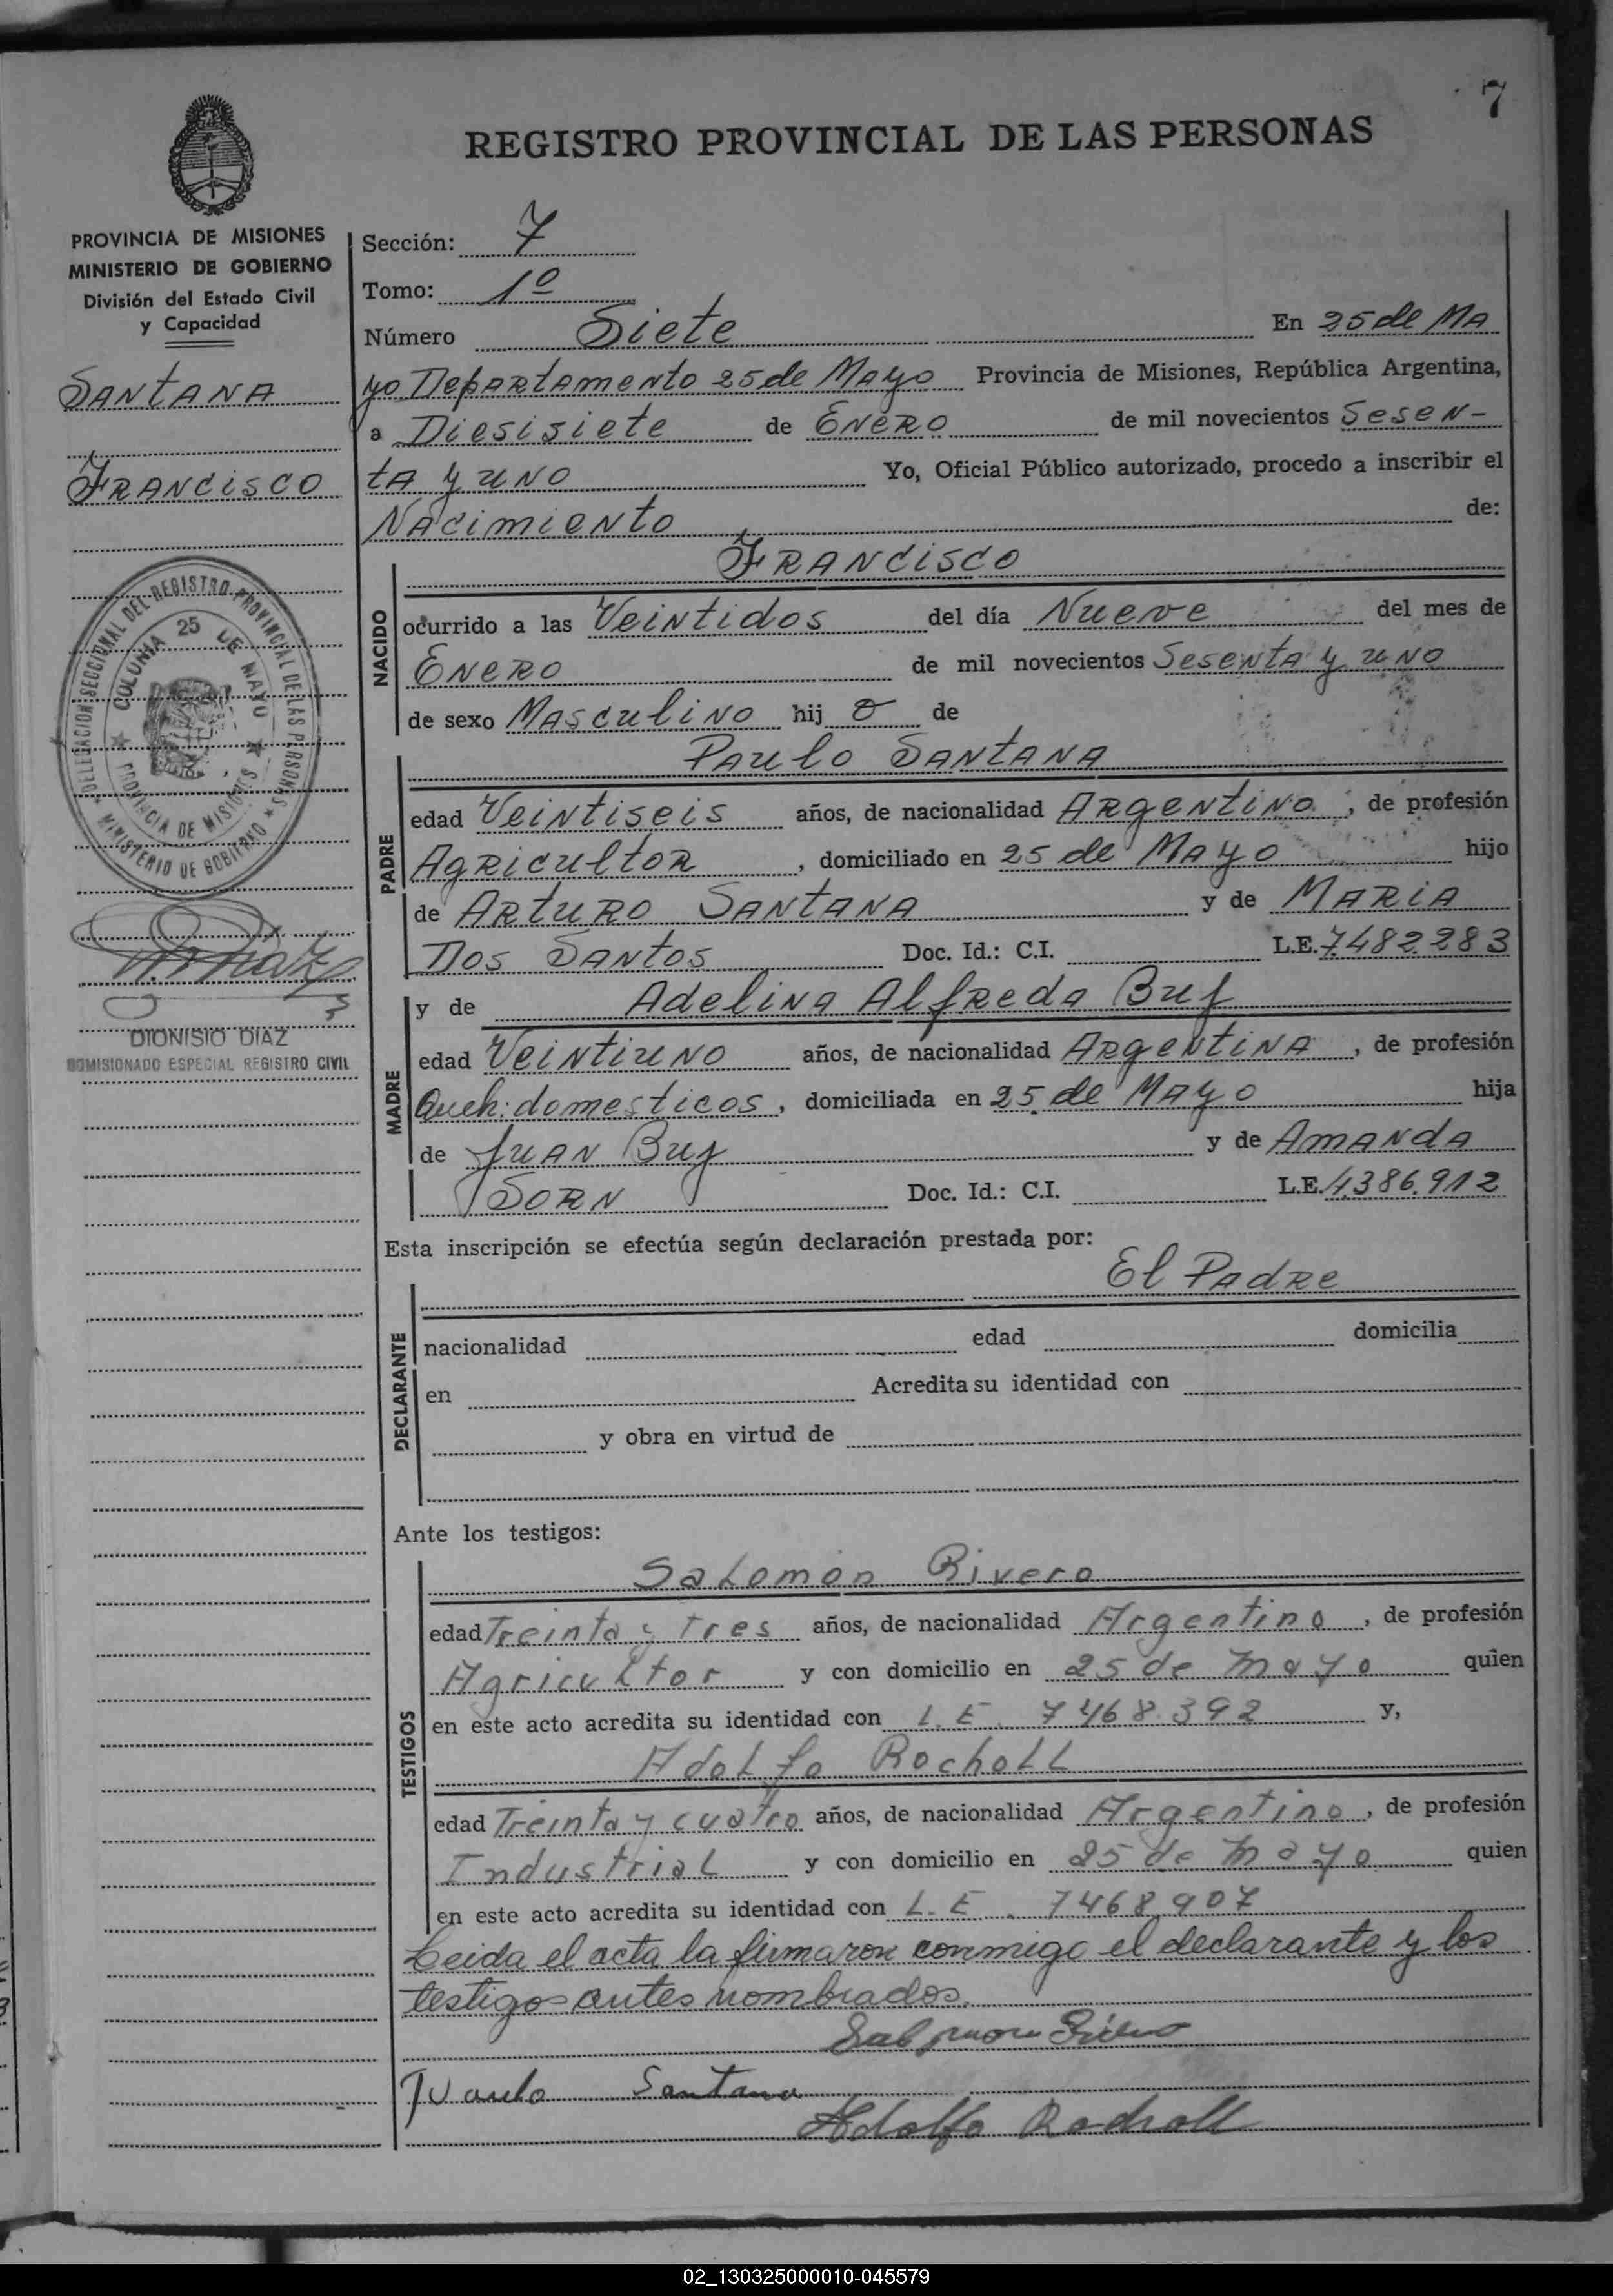 7
REGISTRO PROVINCIAL DE LAS PERSONAS
PROVINCIA DE MISIONES
MINISTERIO DE GOBIERNO
División del Estado Civil
y Capacidad
SANTANA
FRANCISCO
DELEGACION SECCIONAL DEL REGISTRO PROVINCIAL DE LAS PERSONAS
MINISTERIO DE GOBIERNO
COLONIA 25 DE MAYO
PROVINCIA DE MISIONES
DIONISIO DIAZ
COMISIONADO ESPECIAL REGISTRO CIVIL
Sección: 7
Tomo: 1º
Número Siete En 25 de MA
yo Departamento 25 de Mayo Provincia de Misiones, República Argentina,
a Diesisiete de Enero de mil novecientos Sesen-
ta y uno Yo, Oficial Público autorizado, procedo a inscribir el
Nacimiento de:
NACIDO
FRANCISCO
ocurrido a las Veintidos del día Nueve del mes de
Enero de mil novecientos Sesenta y uno
de sexo Masculino hij o de
PADRE
Paulo Santana
edad Veintiseis años, de nacionalidad Argentino, de profesión
Agricultor, domiciliado en 25 de Mayo hijo
de Arturo Santana y de Maria
Dos Santos Doc. Id.: C.I. L.E. 7.482.283
MADRE
y de Adelina Alfreda
edad Veintiuno años, de nacionalidad Argentina, de profesión
Queh: domesticos, domiciliada en 25 de Mayo hija
de Juan y de Amanda
Doc. Id.: C.I. L.E. 4.386.912
Esta inscripción se efectúa según declaración prestada por:
El Padre
DECLARANTE
nacionalidad edad domicilia
en Acredita su identidad con
y obra en virtud de
Ante los testigos:
TESTIGOS
Salomon Rivero
edad Treinta y tres años, de nacionalidad Argentino, de profesión
Agricultor y con domicilio en 25 de mayo quien
en este acto acredita su identidad con L.E. 7468.392 y,
Adolfo Rocholl
edad Treinta y cuatro años, de nacionalidad Argentino, de profesión
Industrial y con domicilio en 25 de mayo quien
en este acto acredita su identidad con L.E. 7468.907
Leida el acta la firmaron conmigo el declarante y los
testigos antes nombrados.
Santana
Adolfo Rocholl
02_130325000010-045579